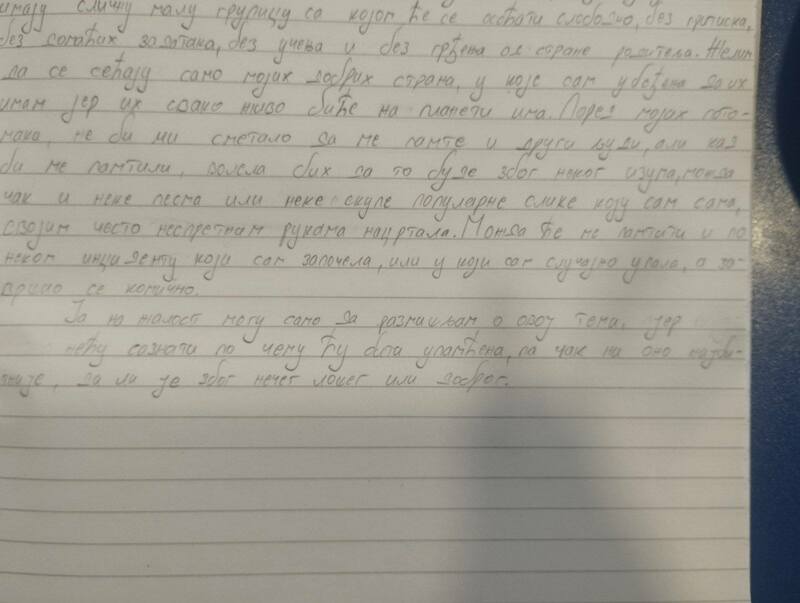 имају сличну малу групицу са којом ће се осећати слободно, без притиска,
без домаћих задатака, без учења и без грђења од стране родитеља. Желим
да се сећају само мојих добрих страна, у које сам убеђена да их
имам јер их свако живо биће на планети има. Поред мојих пото-
мака, не би ми сметало да ме памте и други људи, али кад
би ме памтили, волела бих да то буде због неког изума, можда
чак и неке песма или неке скупе популарне слике коју сам сама,
својим често неспретним рукама нацртала. Можда ће ме памтити и по
неком инциденту који сам започела, или у који сам случајно упала, а за-
вршио се комично.
Ја на жалост могу само да размишљам о овој теми, јер
нећу сазнати по чему ћу бити упамћена, па чак ни оно најби-
тније, да ли је због нечег лошег или доброг.